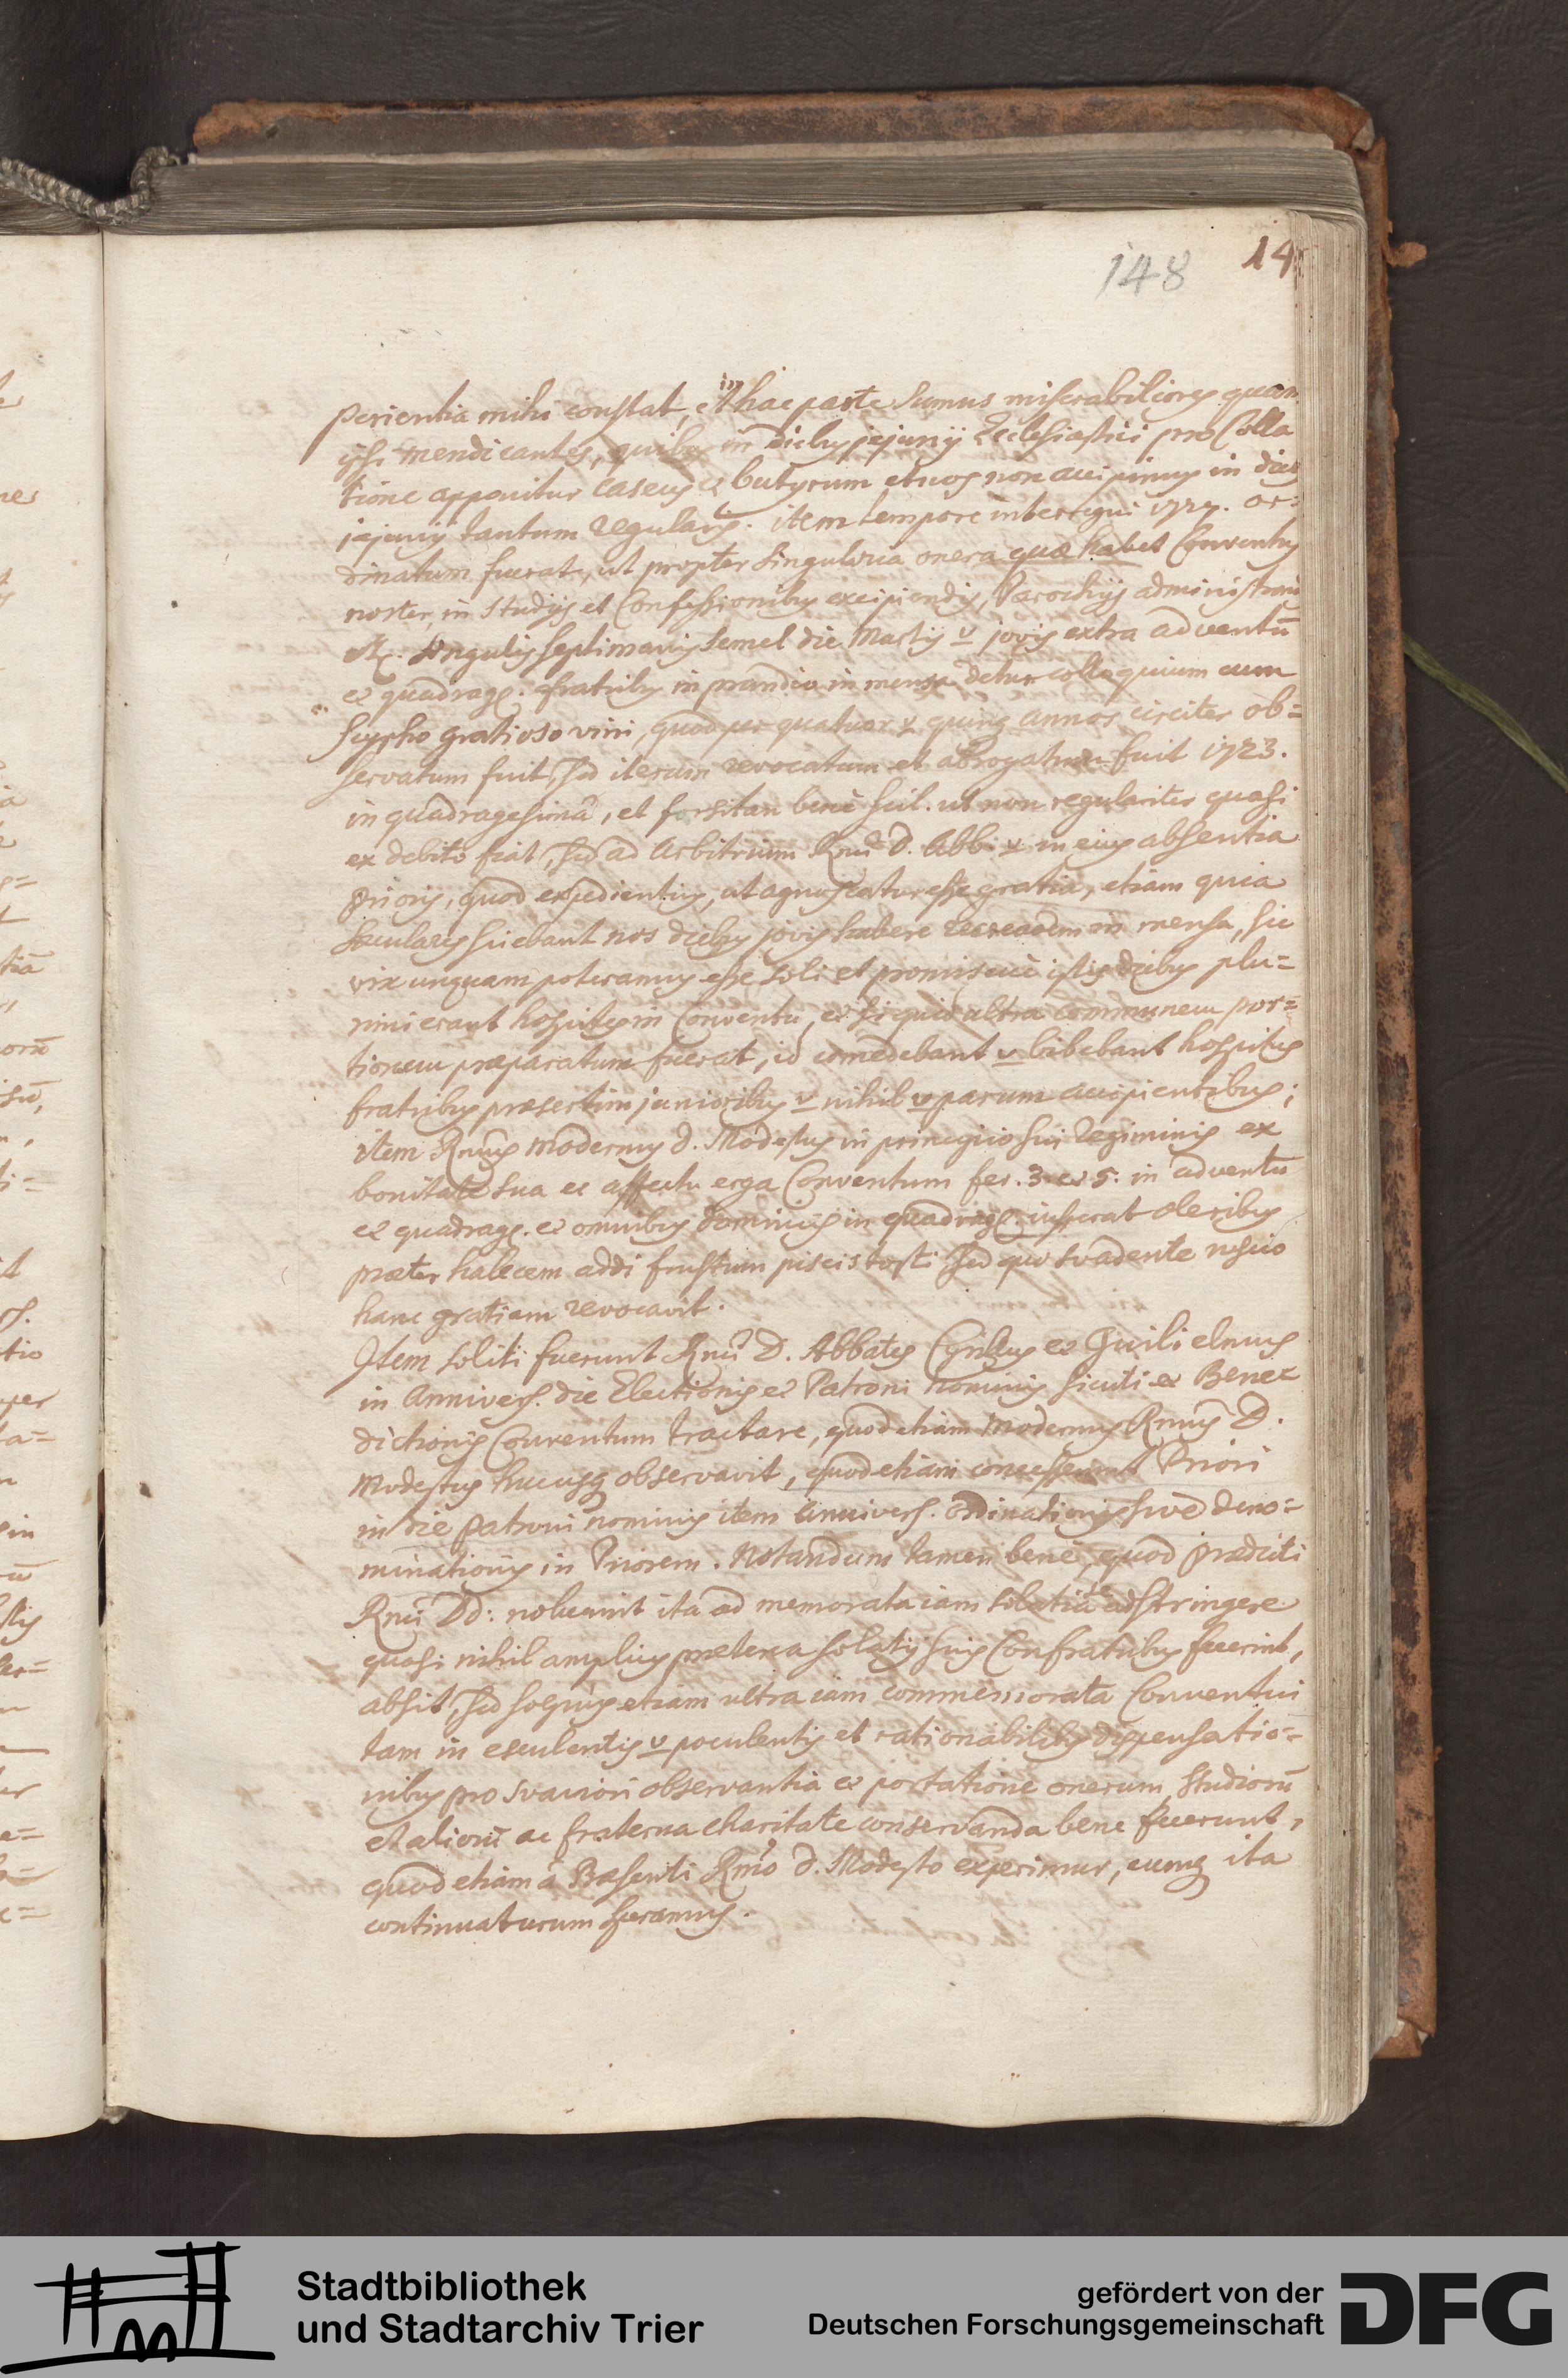 148 14
perientia mihi constat, et in hac parte sumus miserabiliores quam
ipsi mendicantes, quibus in diebus jejunij Ecclesiastici pro Colla
tione apponitur caseus et butyrum et nos non accipimus in dies
jejunij tantum regularis. item tempore interregni 1727. or=
dinatum fuerat, ut propter singularia onera quæ habet Conventus
noster, in studijs et Confessionibus excipiendis, Parochijs administrand
etc. singulis septimanis semel die Martis vel jovis extra adventū
et quadrag. fratribus in prandio in mensa detur colloquium cum
scypho gratioso vini, quod per quatuor vel quinq annos circiter ob=
servatum fuit, sed iterum revocatum et abrogatum fuit 1723.
in quadragesimâ, et forsitan bene scil. ut non regulariter quasi
ex debito fiat, sed ad arbitrium Rmi D. Abb. vel in eius absentia
Prioris, quod expedientius, ut agnoscatur esse gratia, etiam quia
sæculares sciebant nos diebus jovis habere recreaōem in mensa, sic
vix unquam poteramus esse soli et promiscuè istis diebus plu=
rimi erant hospites in Conventu, et si quid ultra communem por=
tionem præparatum fuerat, id comedebant vel bibebant hospites
fratribus præsertim junioribus vel nihil vel parum accipientibus;
item Rmus modernus d. Modestus in principio sui Regiminis ex
bonitate sua et affectu erga Conventum fer. 3. et 5. in adventu
et quadrag. et omnibus dominicis in quadrag. iusserat oleribus
præter halecem addi frustum piscis tosti sed quo svadente nescio
hanc gratiam revocavit.
Item soliti fuerunt Rmi D. Abbates Cyrillus et Guilielmus
in Annivers. die Electionis et Patroni nominis sicuti et Bene=
dictionis Conventum tractare, quod etiam modernus Rmus D.
Modestus hucusq observavit, quod etiam concesserunt Priori
in die Patroni nominis item annivers. ordinationis sive deno=
minationis in Priorem. Notandum tamen bene, quod prædicti
Rmi Dd: noluerint ita ad memorata iam solatia adstringere
quasi nihil amplius præterea solatij suis Confratribus fecerint,
absit, sed sæpius etiam ultra iam commemorata Conventui
tam in esculentis vel poculentis et rationabilibus dispensatio=
nibus pro svaviori observantia et portatione onerum, studiorū
et aliorū ac fraterna charitate conservanda bene fecerunt,
quod etiam à Præsenti Rmo D. Modesto experimur, eumq ita
continuaturum speramus.
Stadtbibliothek
und Stadtarchiv Trier
gefördert von der
Deutschen Forschungsgemeinschaft
DFG